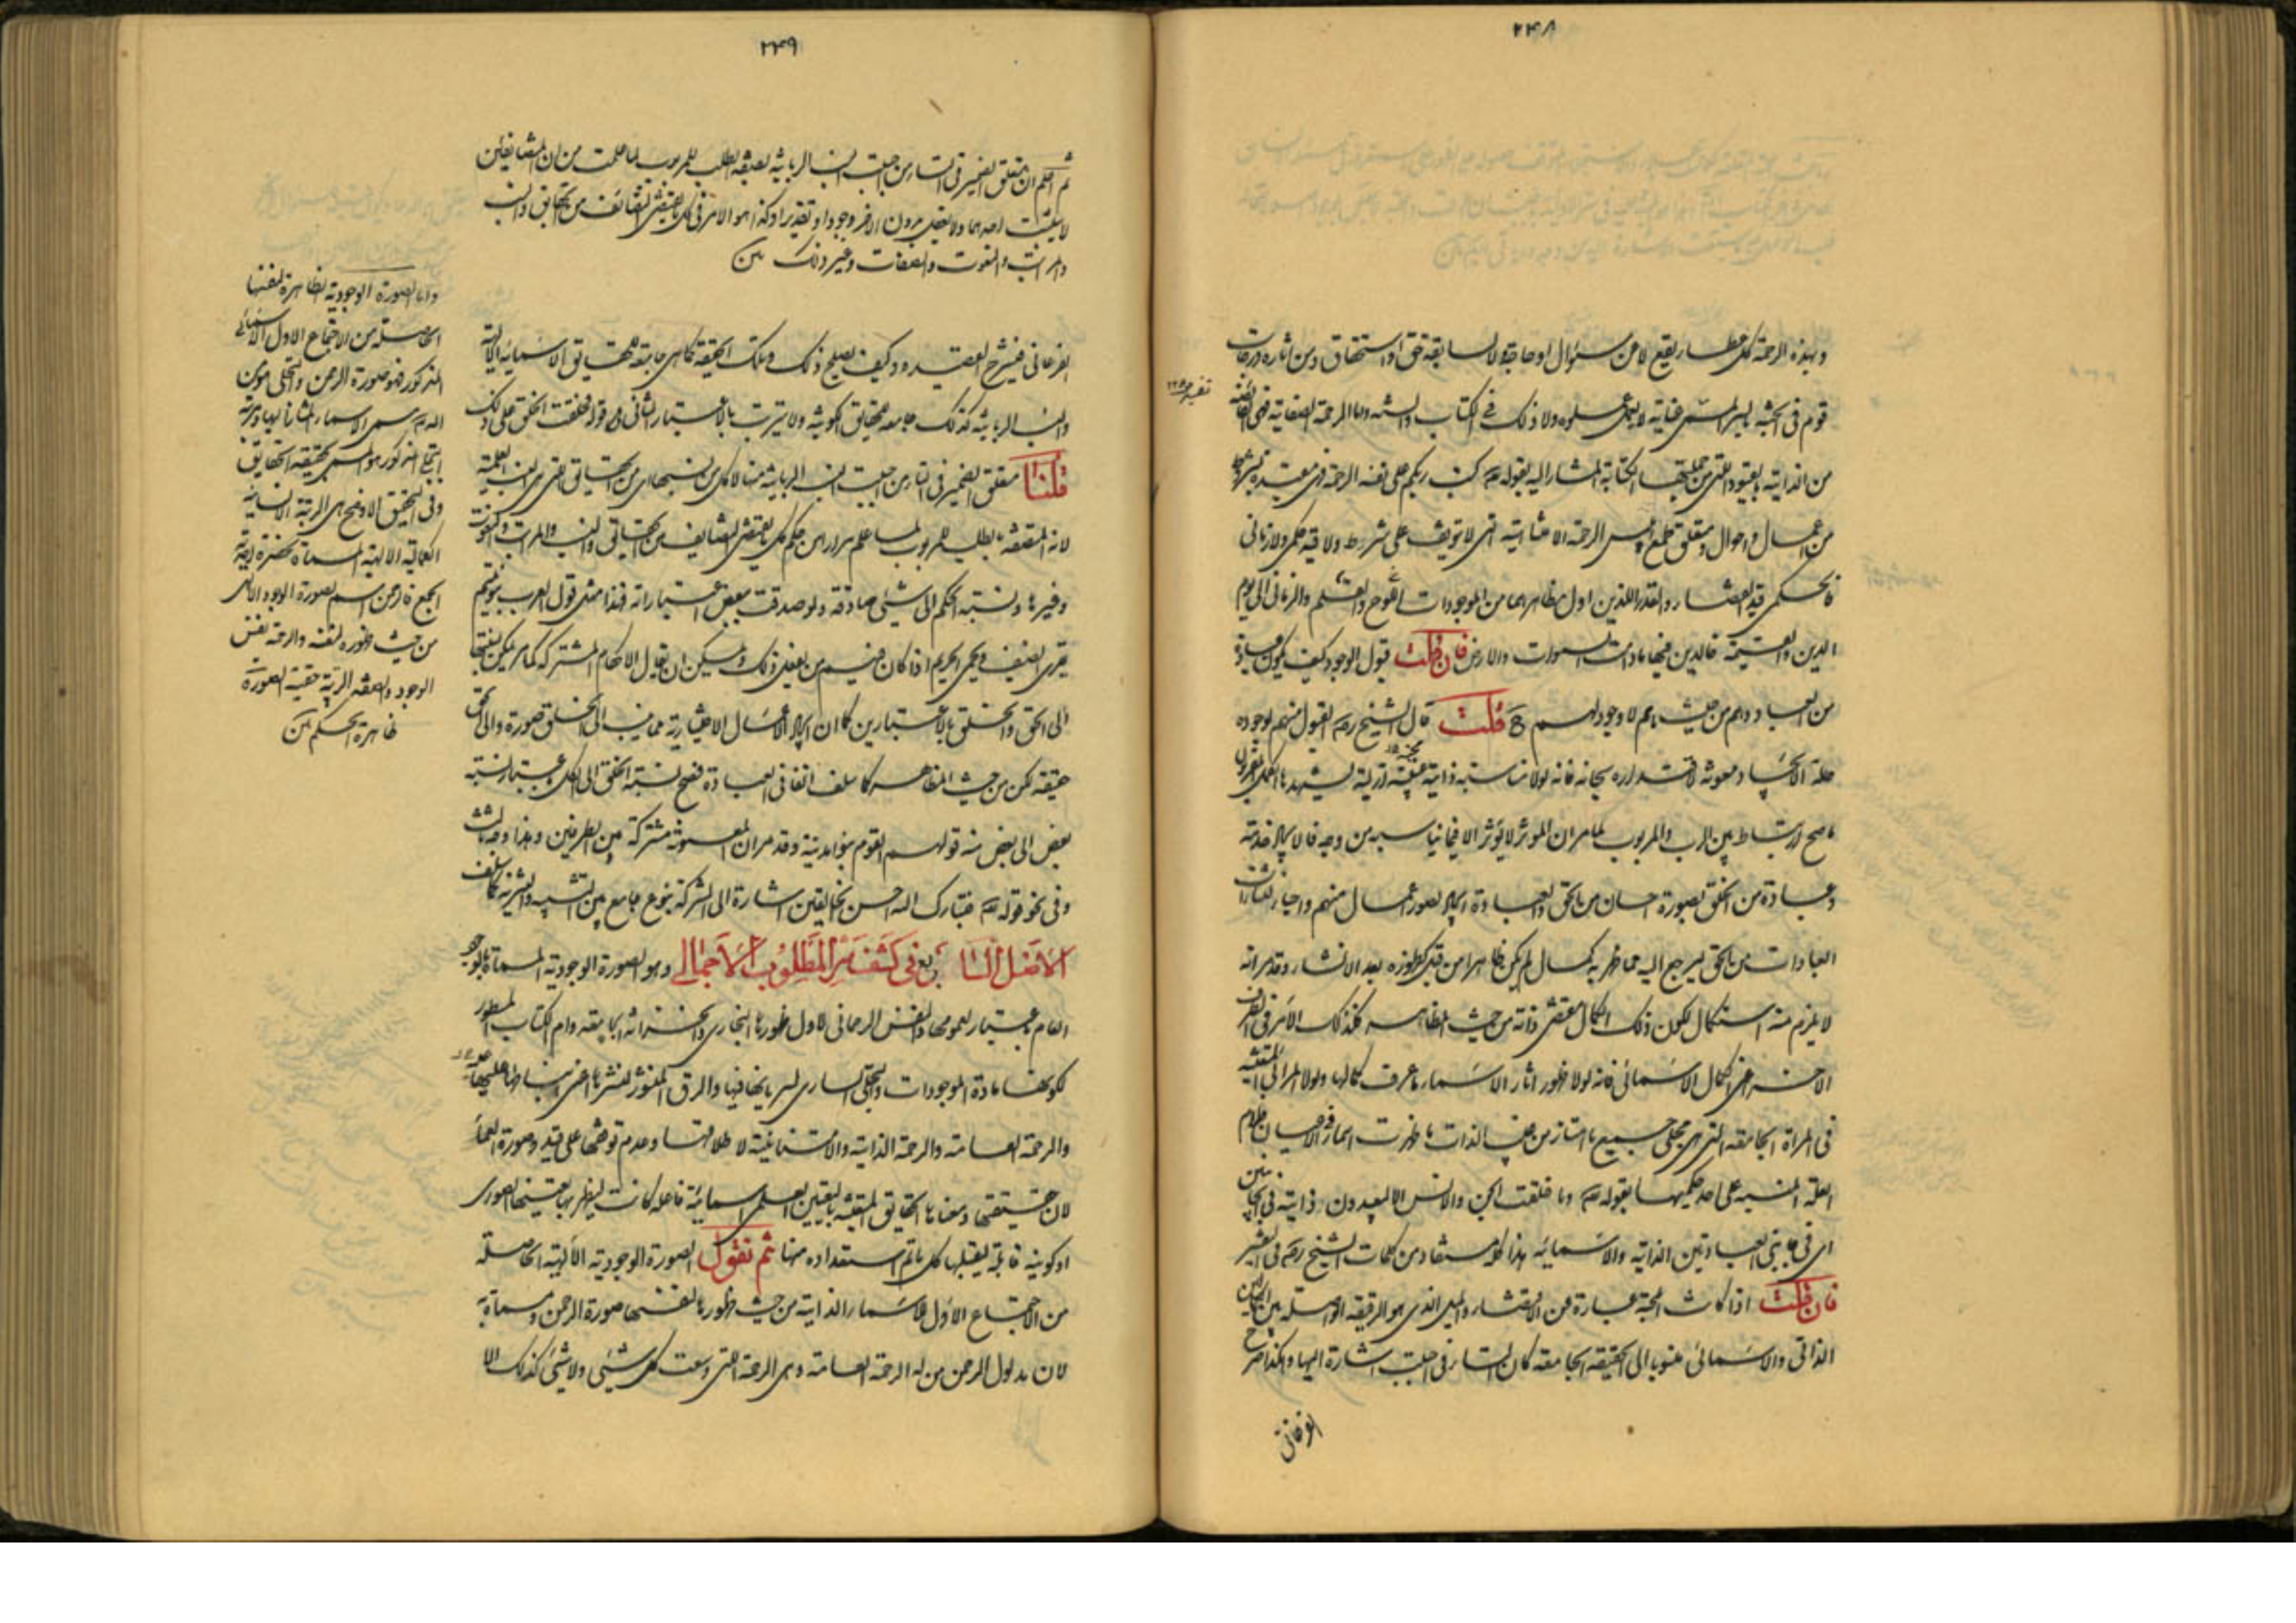 ٢٤٨
وبهذه الرحمة كل عطاء يقع لا عن سؤال او حاجة ولا لسابقة حق او استحقاق ومن اثاره درجات
قوم في الجنة بالسر المسمى عناية لا بعمل عملوه ولا ذلك في الكتاب والسنة واما الرحمة الصفاتية فهي الفائضة
من الذاتية بالقيود التي من جملتها الكتابة المشار اليه بقوله تع كتب ربكم على نفسه الرحمة فهي مقيدة بشروط
من اعمال واحوال ومتعلق طمع ابليس الرحمة الامتنانية التي لا تتوقف على شرط ولا قيد حكمي ولا زماني
فالحكمي قيد القضاء والقدر اللذين اول مظاهرهما من الموجودات اللوح والقلم والزماني الى يوم
الدين والقيمة خالدين فيها ما دامت السموات والارض فان قلت قبول الوجود كيف يكون عبادة
من العباد وهم من حيث هم لا وجود لهم قلت قال الشيخ رضه القبول منهم لوجوده
علة الايجاد ومعونة لاقتداره سبحانه فانه لولا مناسبة ذاتية غيبية ازلية يشهدها الكمل المقربون
ما صح ارتباط بين الرب والمربوب لما مر ان المؤثر لا يؤثر الا فيما يناسبه من وجه فالايجاد خدمة
وعبادة من الخلق بصورة احسان من الحق والعبادة ايجاد لصور اعمال منهم واحياء لنشأت
العبادات من الحق ليرجع اليه مما ظهر به كمال لم يكن ظاهرا من قبل كظهوره بعد الانشاء وقد مر انه
لا يلزم منه استكمال لكون ذلك الكمال مقتضى ذاته من حيث المظاهر فكذلك الامر في الطرف
الاخر اعني الكمال الاسمائي فانه لولا ظهور اثار الاسماء ما عرف كمالها ولولا المرائي المتعينة
في المرآة الجامعة التي هي مجلى جميع ما امتاز من غيب الذات ما ظهرت اسماؤه الاعيان فلام
العلة المنبه على احد حكميها بقوله تع وما خلقت الجن والانس الا ليعبدون ذاتية في الجانبين
اي في جانبي العبادتين الذاتية والاسمائية هذا كله مستفاد من كلمات الشيخ رضه في التفسير
فان قلت اذا كانت المحبة عبارة عن الاقتضاء والميل الذي هو الرقيقة الواصلة بين الكمالين
الذاتي والاسمائي منسوبا الى الحقيقة الجامعة كان التاء في احببت اشارة اليها وهكذا صرح
الفرغاني
٢٤٩
ثم اعلم ان متعلق الضمير في التاء من احببت النسب الربانية لصيغة الطلب للمربوب لما علمت من ان المتضايفين
لا يثبت احدهما ولا يعقل بدون الاخر وجودا وتقديرا وكذا هو الامر في كل ما يقتضي التضايف من الحقايق والنسب
والمراتب والنعوت والصفات وغير ذلك من
الفرغاني في شرح القصيدة وكيف يصلح ذلك وتلك الحقيقة كما هي جامعة للحقايق الاسمائية الالهية
والنسب الربانية كذلك جامعة للحقايق الكونية ولا يترتب بالاعتبار الثاني قوله فخلقت الخلق على ذلك
قلنا متعلق الضمير في التاء من احببت النسب الربانية منها لا كل من نسبها من الحقايق اعني النسب العلمية
لانه المتعقبة بطلب المربوب لما علم مرارا من حكم كل ما يقتضي التضايف من الحقايق والنسب والمراتب والنعوت
وغيرها ونسبة الحكم الى شيء صادقة ولو صدقت ببعض اعتباراته فهذا مثل قول العرب بنو تميم
يقري الضيف ويحمي الحريم اذا كان فيهم من يفعل ذلك ويمكن ان يقال الاحكام المشتركة كما مر يمكن نسبتها
الى الحق والخلق بالاعتبارين كما ان ايجاد الافعال الاختيارية مما ينسب الى الخلق صورة والى الحق
حقيقة لكن من حيث المظاهر كما سلف انفا في العبادة فصح نسبة الخلق الى الكل باعتبار نسبة
بعض الى بعض منه قولهم القوم بنوا مدينة وقد مر ان المعونة مشتركة بين الطرفين وهذا وجه ثالث
وفي نحو قوله تع فتبارك الله احسن الخالقين اشارة الى الشركة بنوع جامع بين التشبيه والتنزيه كما سلف
الاصل السابع في كشف سر المطلوب الاجمالي وهو الصورة الوجودية المسماة بالوجود
العام باعتبار عمومها والنفس الرحماني لاول ظهورها البخاري والخزانة الجامعة وام الكتاب المسطور
لكونها مادة الموجودات والتجلي الساري لسريانها فيها والرق المنشور لنشرها اعني انبساطها عليها
والرحمة العامة والرحمة الذاتية والامتنانية لاطلاقها وعدم توقفها على قيد وصورة العماء
لان حقيقتها ومعناها الحقايق المتعينة بالتعين العلمي اسمائية فاعلة كانت ليظهر بها تعينها الصوري
او كونية قابلة يقبلها كل ما تم استعداده منها ثم نقول الصورة الوجودية الالهية الحاصلة
من الاجتماع الاول للاسماء الذاتية من حيث ظهورها لنفسها صورة الرحمن ومسماة به
لان مدلول الرحمن من له الرحمة العامة وهي الرحمة التي وسعت كل شيء ولا شيء كذلك الا
واما الصورة الوجودية الظاهرة لنفسها
الحاصلة من الاجتماع الاول الاسمائي
المذكور فهو صورة الرحمن والتجلي
اجتماع المذكور هو المسمى بحقيقة الحقايق
وفي التحقيق الاوضح هي الرتبة الانسانية
الكمالية الالهية المسماة بحضرة احدية
الجمع فالرحمن اسم لصورة الوجود الالهي
من حيث ظهوره لنفسه والرحمة نفس
الوجود والحقيقة
ظاهرة الحكم من